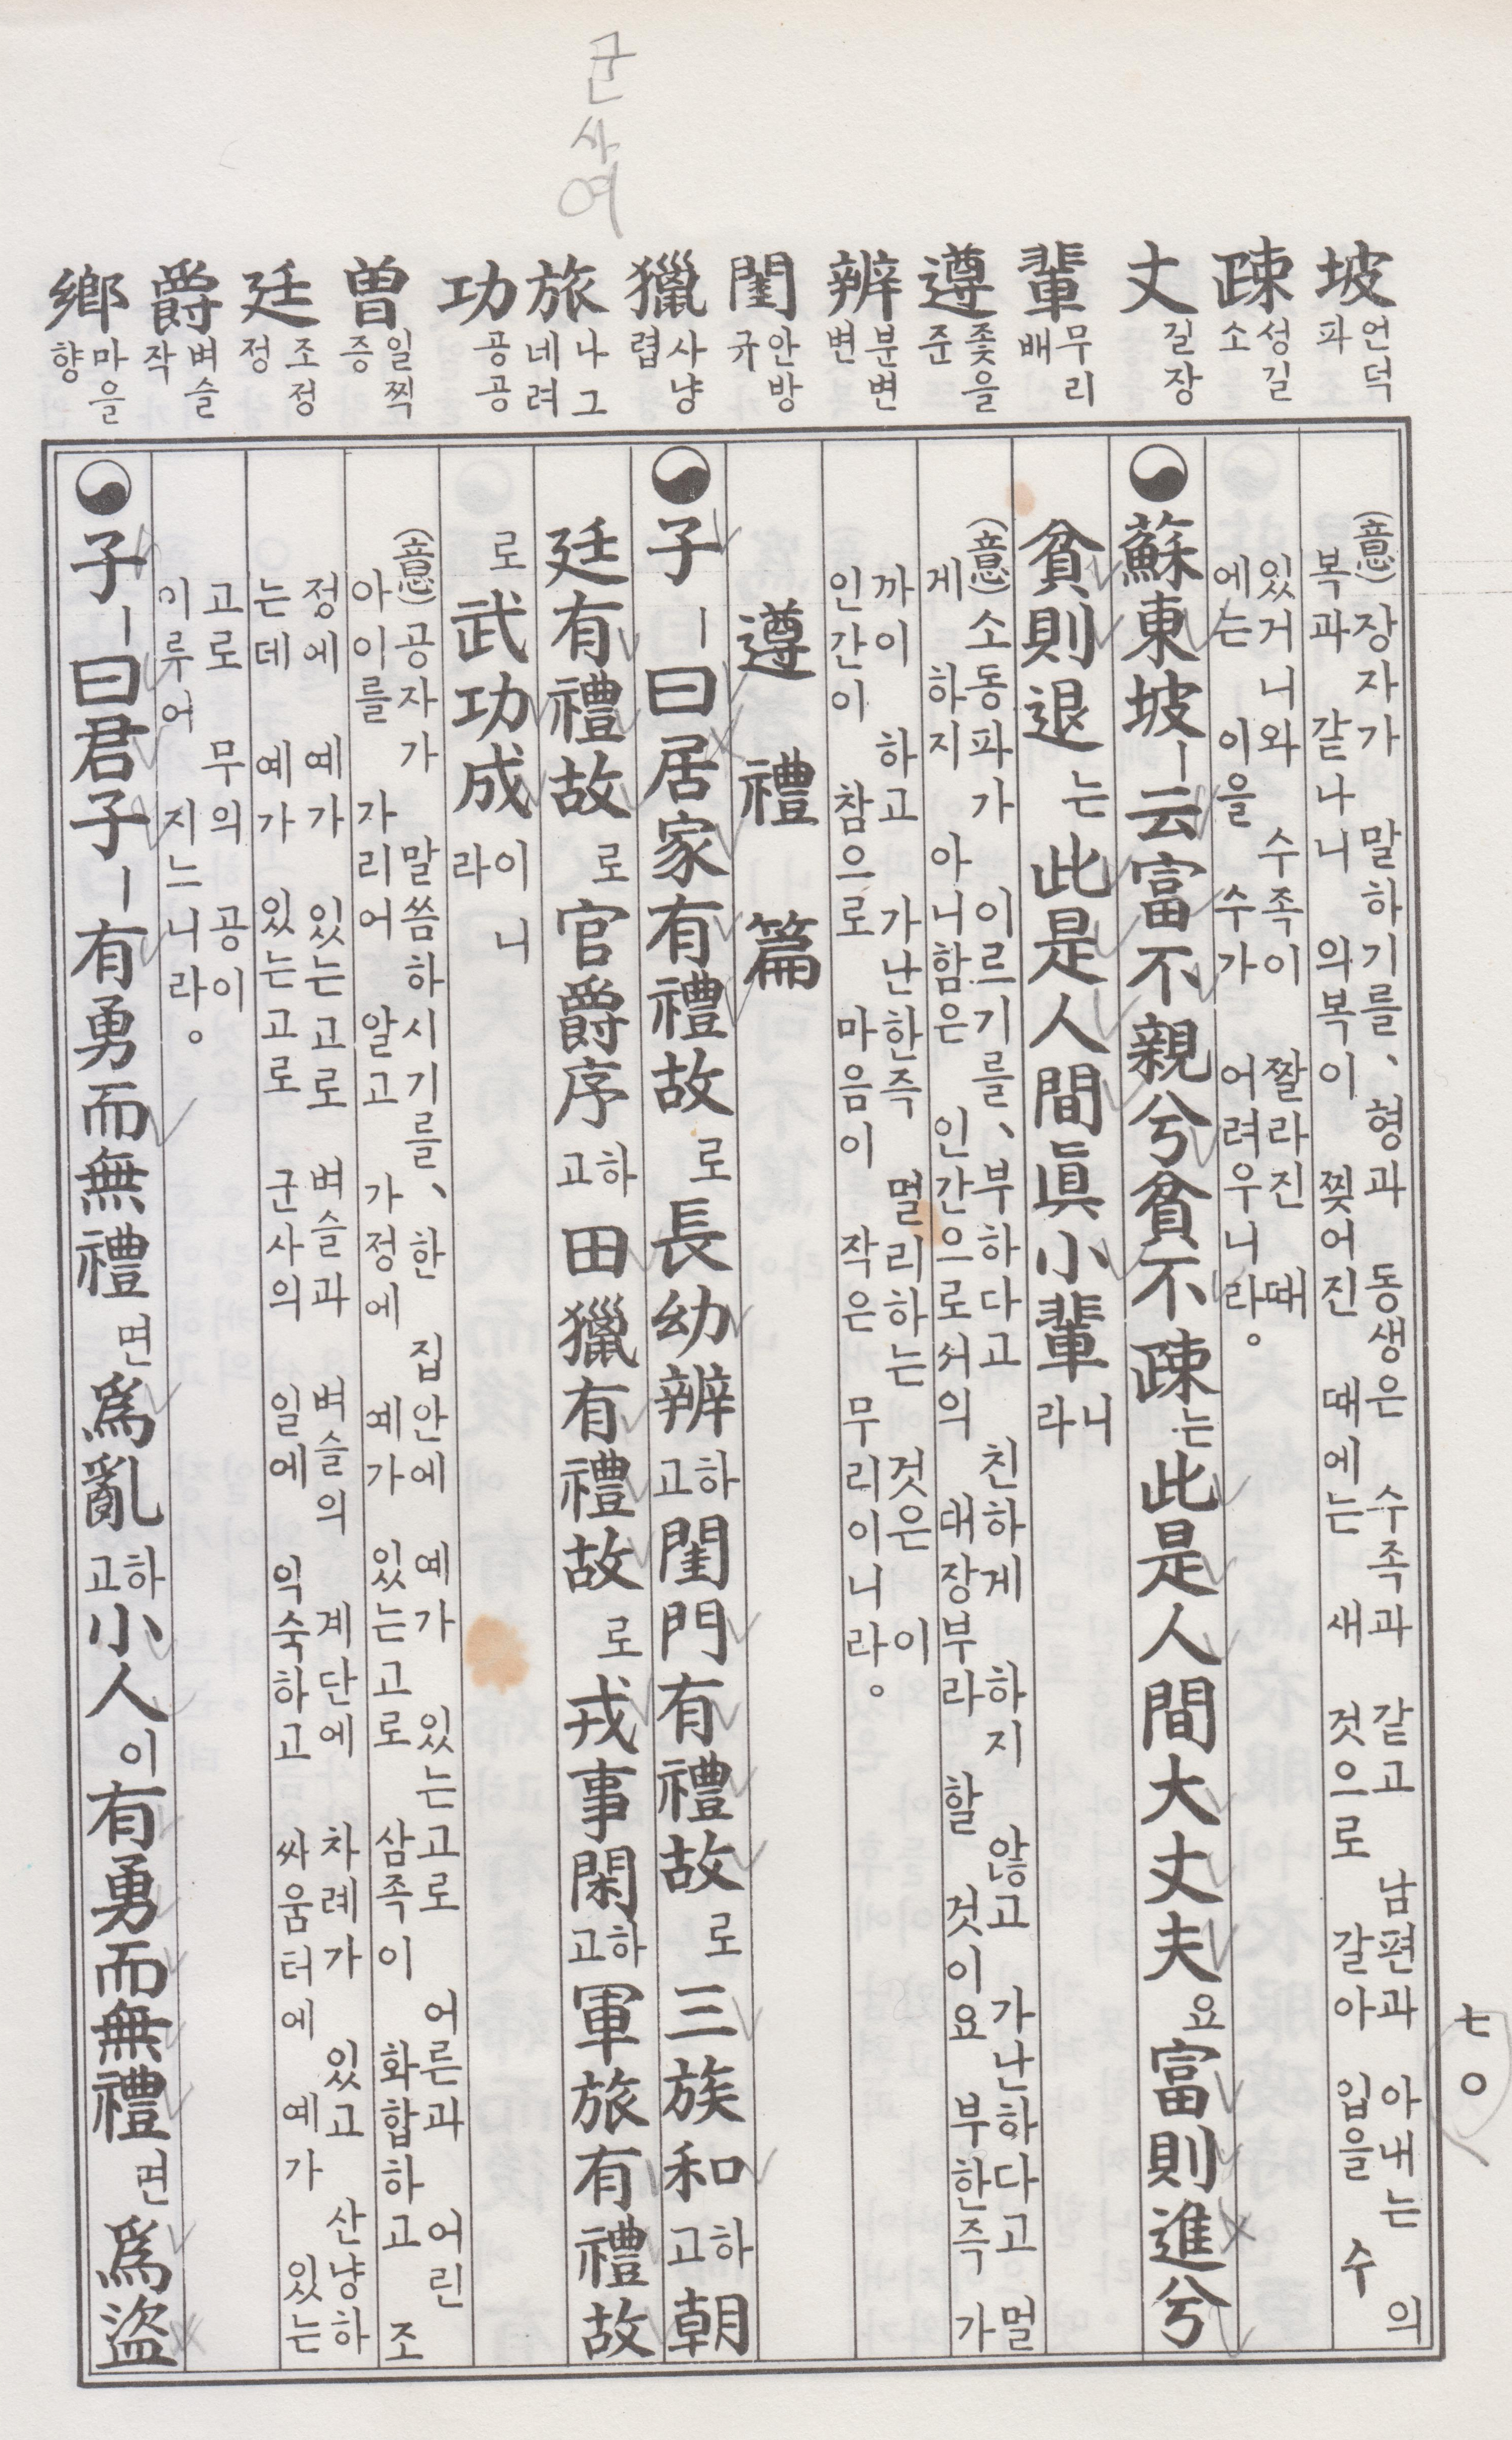 군사여
坡 언덕 파
疎 성길 소
丈 길 장
輩 무리 배
遵 좇을 준
辨 분변 변
閨 안방 규
獵 사냥 렵
旅 나그네 려
功 공 공
曾 일찍 증
廷 조정 정
爵 벼슬 작
鄕 마을 향
七〇
(意) 장자가 말하기를, 형과 동생은 수족과 같고 남편과 아내는 의
복과 같나니 의복이 찢어진 때에는 새 것으로 갈아 입을 수
있거니와 수족이 짤라진 때
에는 이을 수가 어려우니라。
蘇東坡ㅣ云富不親兮貧不疎는此是人間大丈夫요富則進兮
貧則退는此是人間眞小輩라니
(意) 소동파가 이르기를、부하다고 친하게 하지 않고 가난하다고 멀
게 하지 아니함은 인간으로서의 대장부라 할 것이요 부한즉 가
까이 하고 가난한즉 멀리하는 것은 이
인간이 참으로 마음이 작은 무리이니라。
遵禮篇
子ㅣ曰居家有禮故로長幼辨하고閨門有禮故로三族和하고朝
廷有禮故로官爵序하고田獵有禮故로戎事閑하고軍旅有禮故
로武功成이니라
(意) 공자가 말씀하시기를、한 집안에 예가 있는고로 어른과 어린
아이를 가리어 알고 가정에 예가 있는고로 삼족이 화합하고 조
정에 예가 있는고로 벼슬과 벼슬의 계단에 차례가 있고 산냥하
는데 예가 있는고로 군사의 일에 익숙하고 싸움터에 예가 있는
고로 무의 공이
이루어 지느니라。
子ㅣ曰君子ㅣ有勇而無禮면爲亂하고小人이有勇而無禮면爲盜